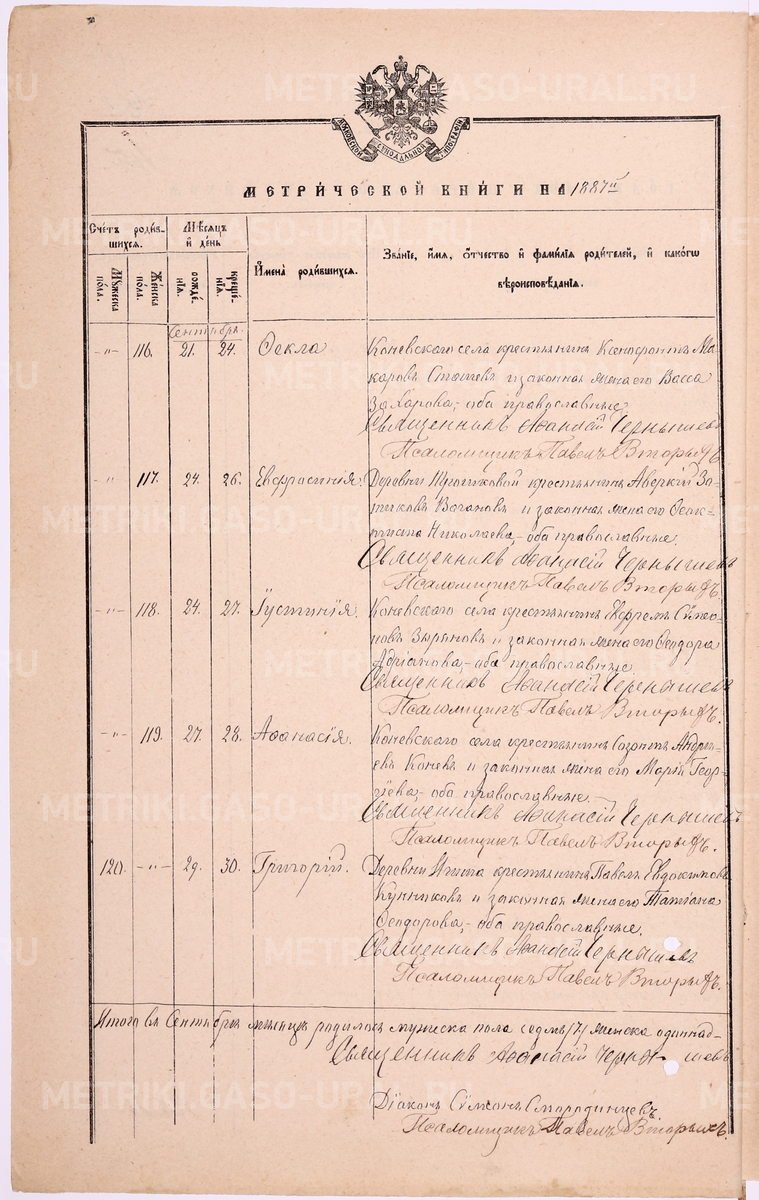 МОСКОВСКОЙ СИНОДАЛЬНОЙ ТИПОГРАФІИ
МЕТРИ́ЧЕСКОЙ КНИ́ГИ НА 1887й
Сче́тъ роди́вшихся.
Мѣ́сяцъ и̂ де́нь
И̂мена̀ роди́вшихся.
Зва́нїе, и̂́мя, ѻ̂́тчество и̂ фамѝлїя роди́телей, и̂ како́гѡ вѣроисповѣ́данїя.
Му́жеска по́ла.
Же́нска по́ла.
рожде́нїя.
креще́нїя.
Сентябрь.
-"- 116. 21. 24. Ѳекла Коневскаго села крестьянинъ Ксенофонтъ Ма-
каровъ и законная жена его Васса
Захарова, оба православные.
Священникъ Аѳанасій Чернышевъ
Псаломщикъ Павелъ Вторыхъ.
-"- 117. 24. 26. Евфрасинія. Деревни крестьянинъ Аверкій
и законная жена его
Николаева, оба православные.
Священникъ Аѳанасій Чернышевъ
Псаломщикъ Павелъ Вторыхъ.
-"- 118. 24. 27. Іустинія. Коневскаго села крестьянинъ Ефремъ Сѵмео-
новъ Зыряновъ и законная жена его Ѳеодора
Адріанова, оба православные
Священникъ Аѳанасій Чернышевъ
Псаломщикъ Павелъ Вторыхъ.
-"- 119. 27. 28. Аѳанасія. Коневскаго села крестьянинъ Созонтъ Андре-
евъ Коневъ и законная жена его Марія Геор-
гіева, оба православные.
Священникъ Аѳанасій Чернышевъ
Псаломщикъ Павелъ Вторыхъ.
120. -"- 29. 30. Григорій. Деревни крестьянинъ Павелъ Евдокимовъ
Кунниковъ и законная жена его Татіана
Ѳеодорова, оба православные.
Священникъ Аѳанасій Чернышевъ
Псаломщикъ Павелъ Вторыхъ.
Итого въ Сентябрѣ мѣсяцѣ родилось мужеска пола седмь /7/ женска одиннад-
Священникъ Аѳанасій Чернышевъ
Діаконъ Сѵмеонъ Смородинцевъ.
Псаломщикъ Павелъ Вторыхъ.
METRIKI.GASO-URAL.RU